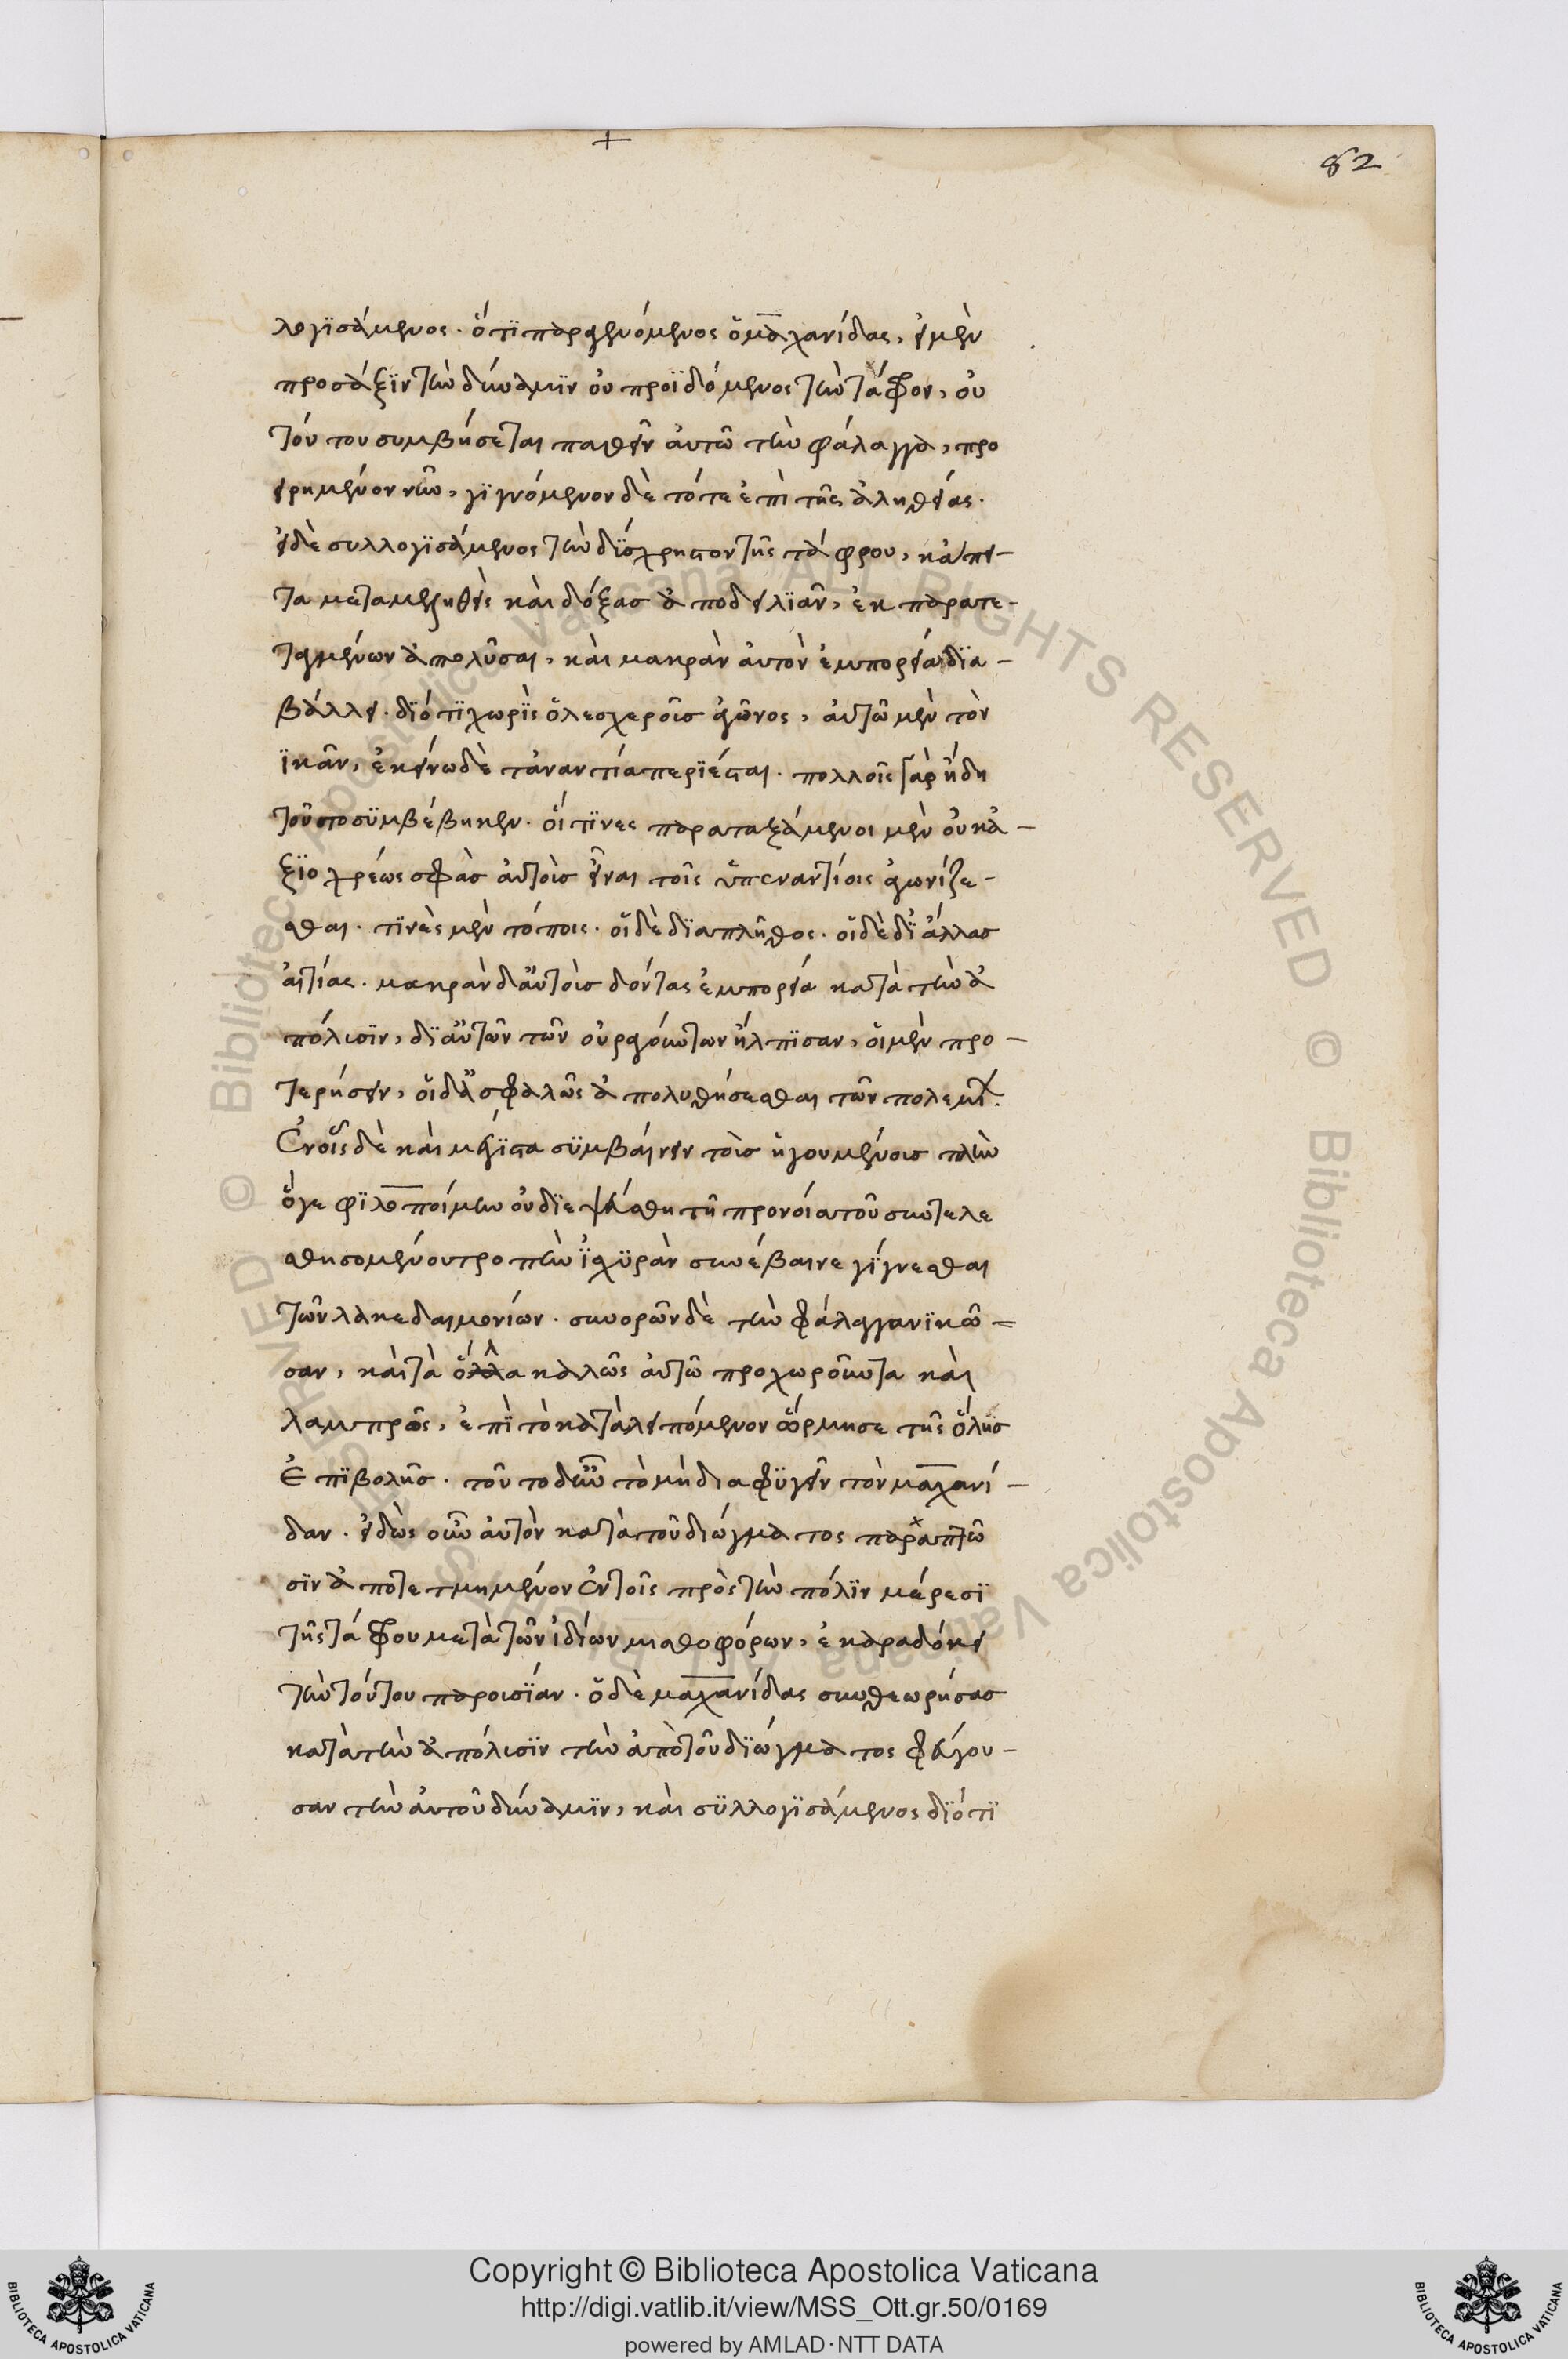 82
λογϊσάμενος· ὅτϊ παραγενόμενος ὁ μαχανίδας, εἰ μὲν
προσάξϊν τὴν δύναμϊν οὐ προϊδόμενος τὴν τάφρον, οὐ
τόν του συμβήσεται παθεῖν ἀυτῶ τὴν φάλαγγα, προ
ειρημένον νῦν, γϊγνόμενον δὲ τότε ἐπὶ τῆς ἀληθείας·
εἰ δὲ συλλογϊσάμενος τὴν δϊσχρηστον τῆς τάφρου, κἄπει–
τα μεταμεληθεὶς καὶ δόξασ ἀποδειλϊᾶν, ἐκ παρατε–
ταγμένων ἀπολῦσαι, καὶ μακρὰν ἀυτὸν ἐμπορεία δϊα–
βάλλει· δϊότϊ χωρϊς ὁλοσχεροῦσ ἀγῶνος, ἀυτῶ μὲν τὸν
ϊκᾶν, ἐκείνω δὲ τἀναντία περϊέσται· πολλοῖς γὰρ ἤδη
τοῦτο σϋμβέβηκεν· οἵτϊνες παραταξάμενοι μὲν οὐκ ἀ–
ξϊοχρέως σφὰσ ἀυτοὺσ εἶναι τοῖς ὑπεναντίοις ἀγωνίζε–
σθαι· τϊνὲς μὲν τόποις· οἱ δὲ δϊαπλῆθος· οἱ δὲ δϊ ἄλλασ
ἀιτίας· μακρὰν δ ἀυτοὺσ δόντας ἐμπορεία κατὰ τὴν ἀ
πόλυσϊν, δϊ ἀυτῶν τῶν οὐραγούντων ἤλπϊσαν, οἱ μὲν προ–
τερήσειν, οἱ δ ἀσφαλῶς ἀπολυθήσεσθαι τῶν πολεμί.
Ἐν οἷς δὲ καὶ μέγϊστα σϋμβαίνειν τοὶσ ἡγουμένοισ τὴν
ὅγε φϊλοποίμην οὐ δϊεψεύσθη τῆ προνοία τοῦ συντελε
σθησομένου τροπὴν ϊσχϋρὰν συνέβαινε γϊγνεσθαι
τῶν λακεδαιμονίων· συνορῶν δὲ τὴν φάλαγγα νϊκῶ=
σαν, καὶ τὰ ὅλα καλῶς ἀυτῶ προχωροῦντα καὶ
λαμπρῶς, ἐπϊ τὸ καταλειπόμενον ὥρμησε τῆς ὅλησ
Ἐπϊβολῆσ· τοῦτο δ ἦν τὸ μὴ διαφϋγεῖν τὸν μαχανί–
δαν· εἰδὼς οὖν ἀυτὸν κατὰ τοῦ δϊώγματος παράπτω
σϊν ἀποτετμημένον ἐν τοῖς πρὸς τὴν πόλϊν μέρεσϊ
τῆς τάφρου μετὰ τῶν ἰδίων μισθοφόρων, ἐκαραδόκει
τὴν τούτου παρουσϊαν· ὁ δὲ μαχανίδας συνθεωρήσασ
κατὰ τὴν ἀπόλυσϊν τὴν ἀπὸ τοῦ δϊώγματος φεύγου–
σαν τὴν ἀυτοῦ δύναμϊν, καὶ σϋλλογϊσάμενος δϊότϊ
Copyright © Biblioteca Apostolica Vaticana
http://digi.vatlib.it/view/MSS_Ott.gr.50/0169
powered by AMLAD·NTT DATA